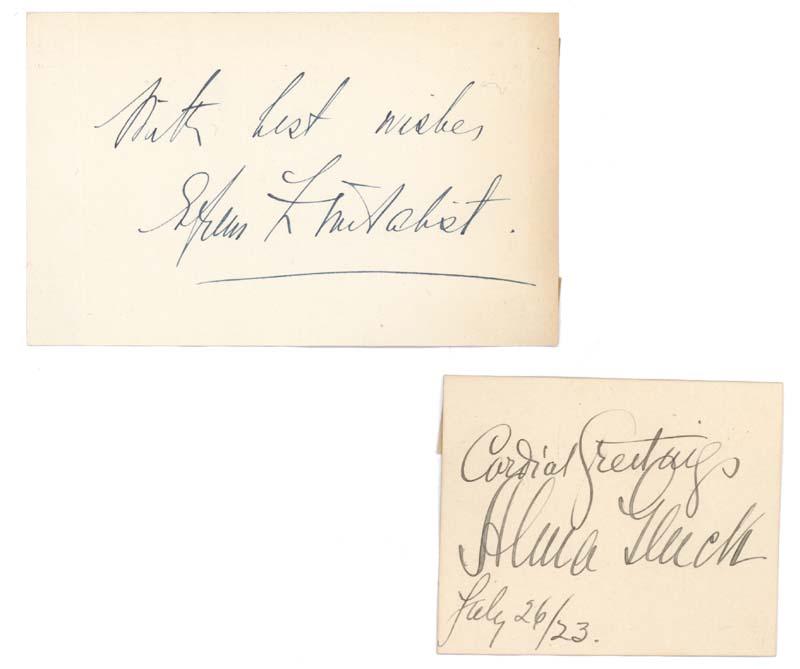 With best wishes
Efrem Zimbalist.
Cordial Greetings
Alma Gluck
July 26/23.